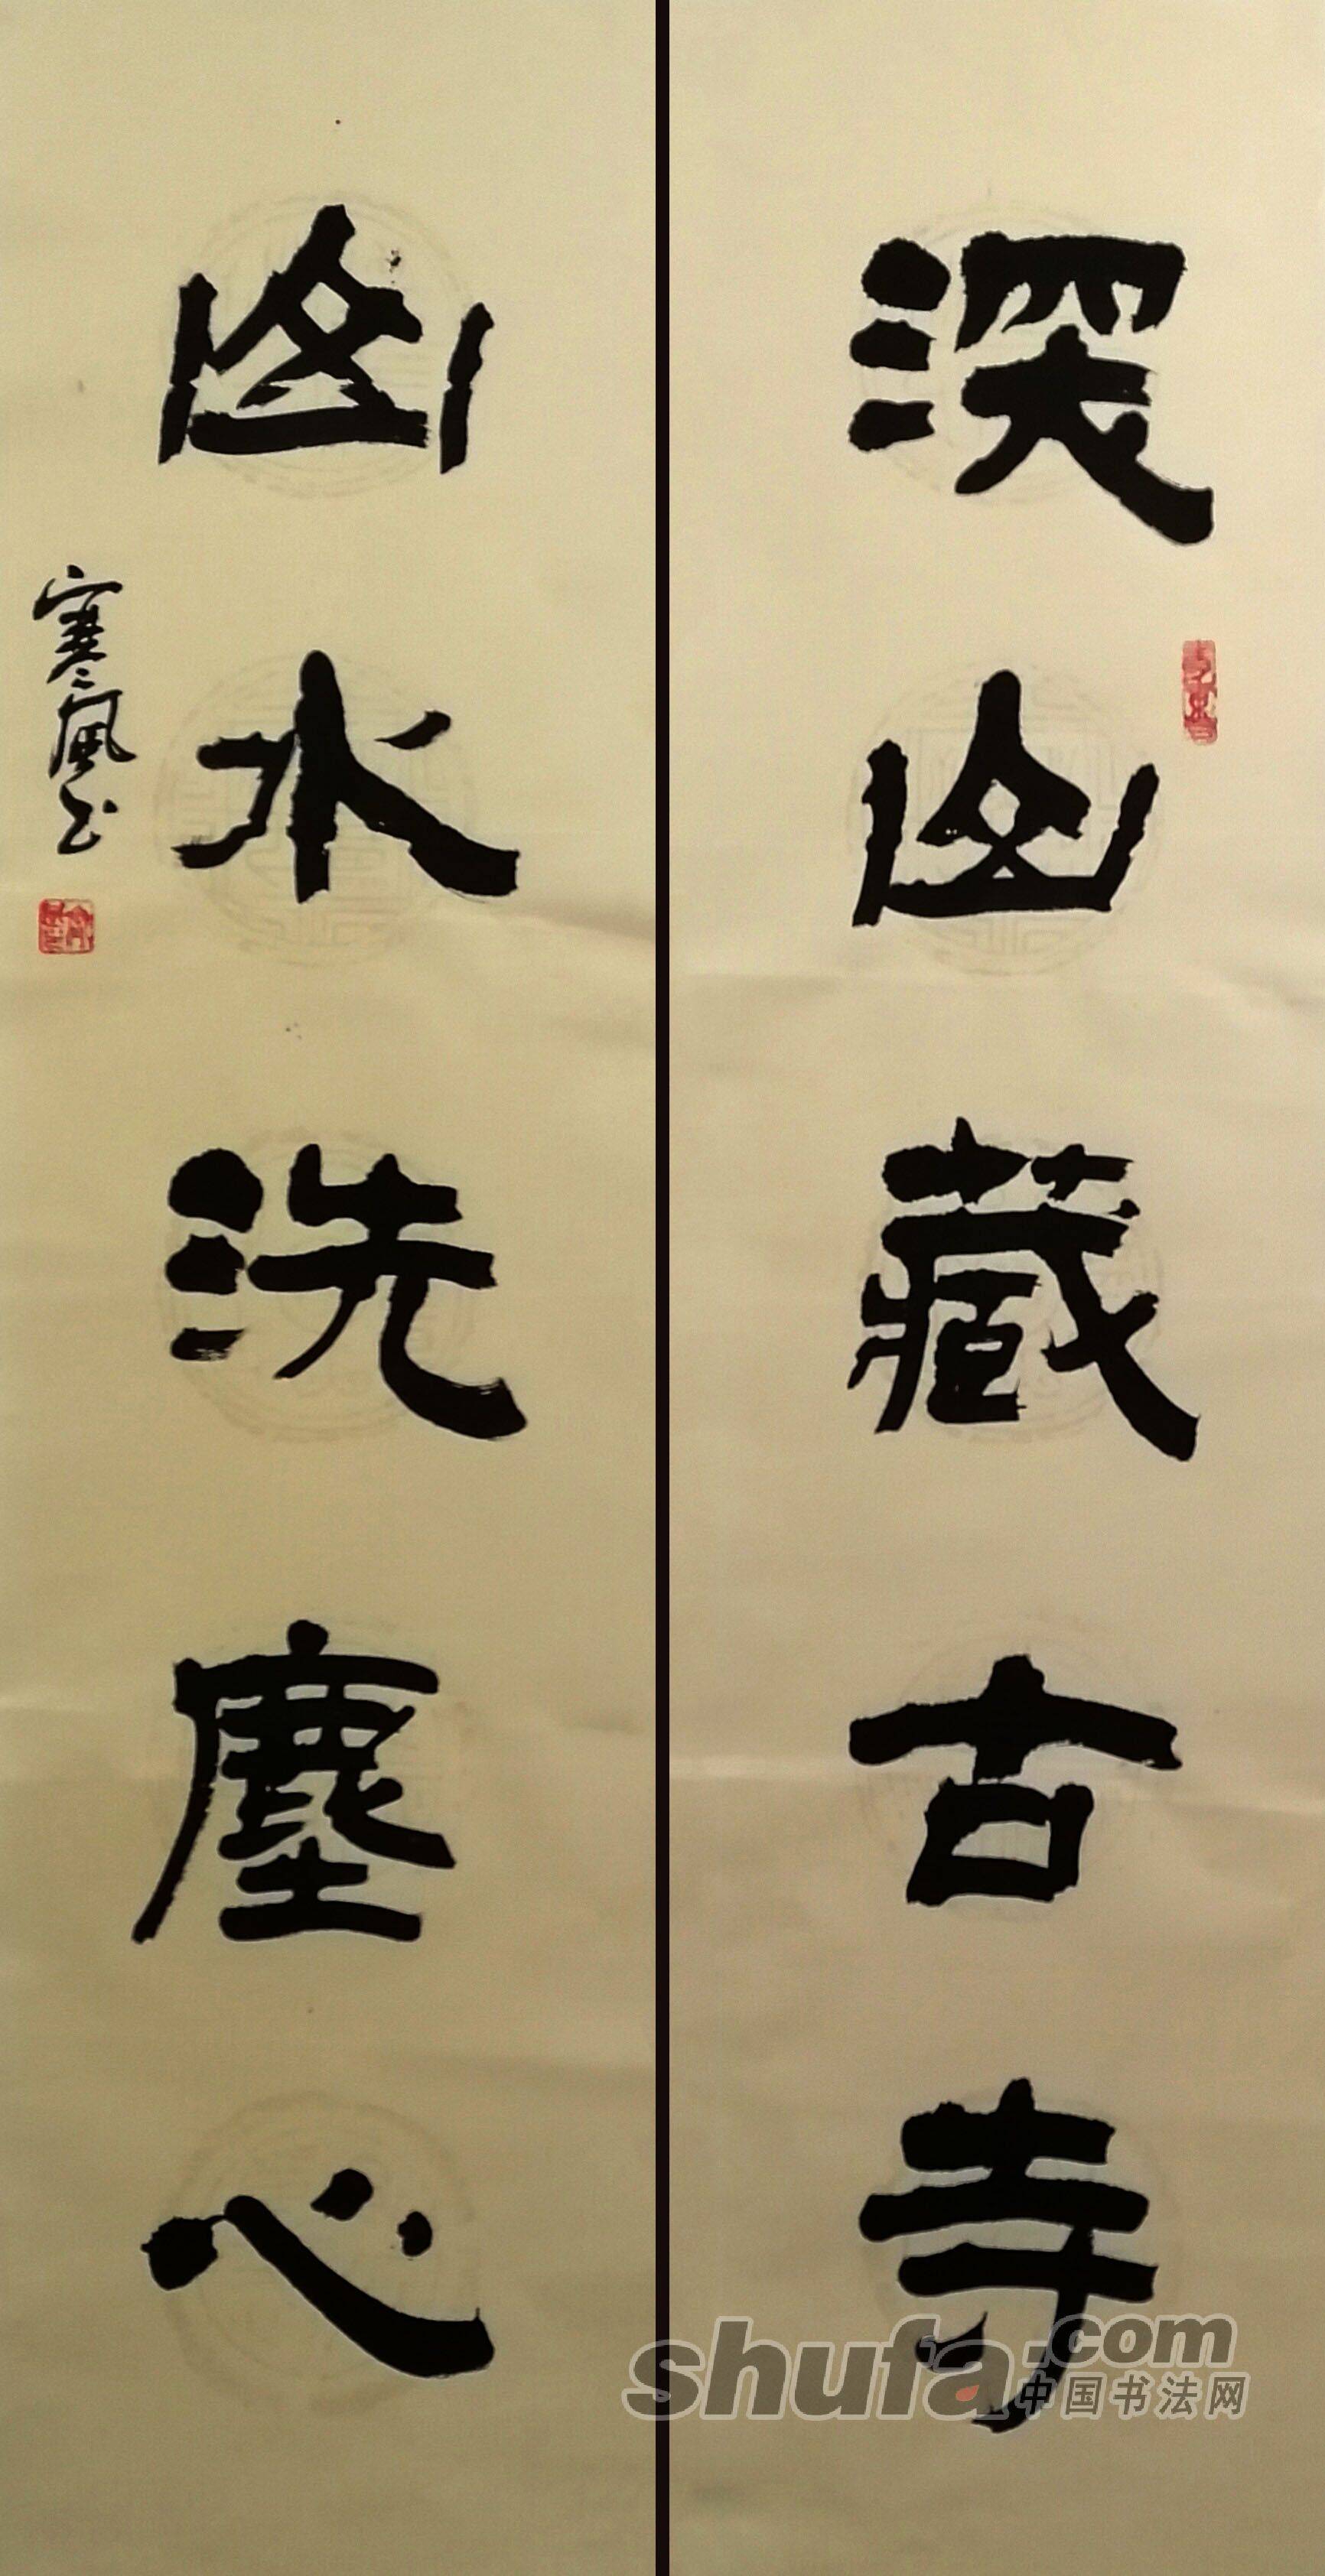 深山藏古寺
山水洗塵心
寒風书
shufa.com
中国书法网